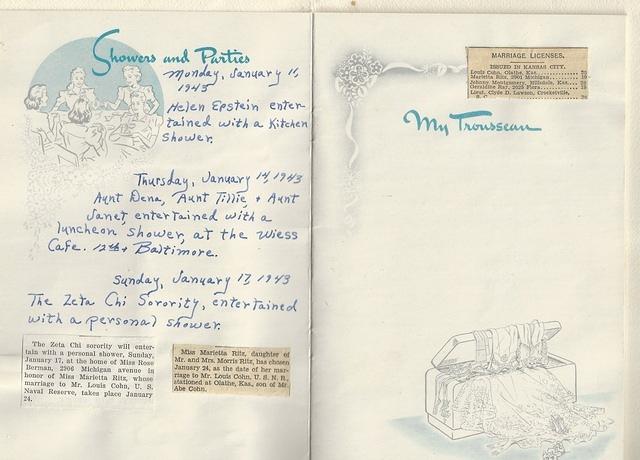 Showers and Parties
Monday, January 11,
1943
Helen Epstein enter-
tained with a Kitchen
Shower.
Thursday, January 14, 1943
Aunt Dena, Aunt Tillie, + Aunt
Janet, entertained with a
luncheon shower, at the Wiess
Cafe. 12th + Baltimore.
Sunday, January 17, 1943
The Zeta Chi Sorority, entertained
with a personal shower.
The Zeta Chi sorority will enter-
tain with a personal shower, Sunday,
January 17, at the home of Miss Rose
Berman, 2906 Michigan avenue in
honor of Miss Marietta Ritz, whose
marriage to Mr. Louis Cohn, U. S.
Naval Reserve, takes place January
24.
Miss Marietta Ritz, daughter of
Mr. and Mrs. Morris Ritz, has chosen
January 24, as the date of her mar-
riage to Mr. Louis Cohn, U. S. N. R.,
stationed at Olathe, Kas., son of Mr.
Abe Cohn.
MARRIAGE LICENSES.
ISSUED IN KANSAS CITY.
Louis Cohn, Olathe, Kas.
Marietta Ritz, 2901 Michigan
Johnny Montgomery, Hillsdale, Kas.
Geraldine Ray, 2025 Flora
Lieut. Clyde D. Lawson, Crocketville,
S. C.
My Trousseau